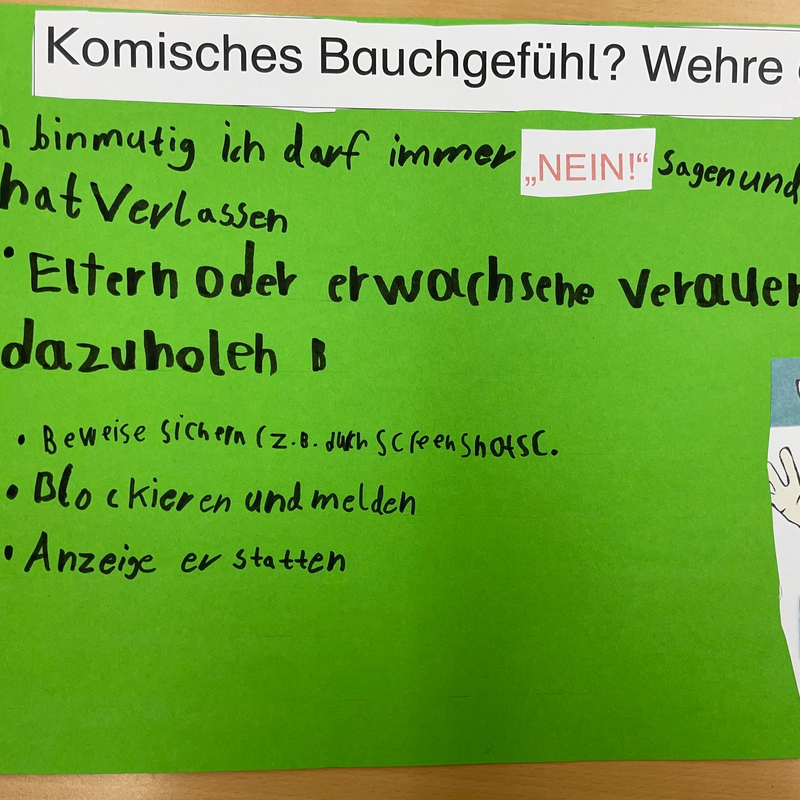 Komisches Bauchgefühl? Wehre
binmutig ich darf immer „NEIN!“ sagen und
hat Verlassen
• Eltern oder erwachsehe Verauer
dazuholeh B
• Beweise sichern (z.B. durch ScreenshotsC.
• Blockieren und melden
• Anzeige erstatten